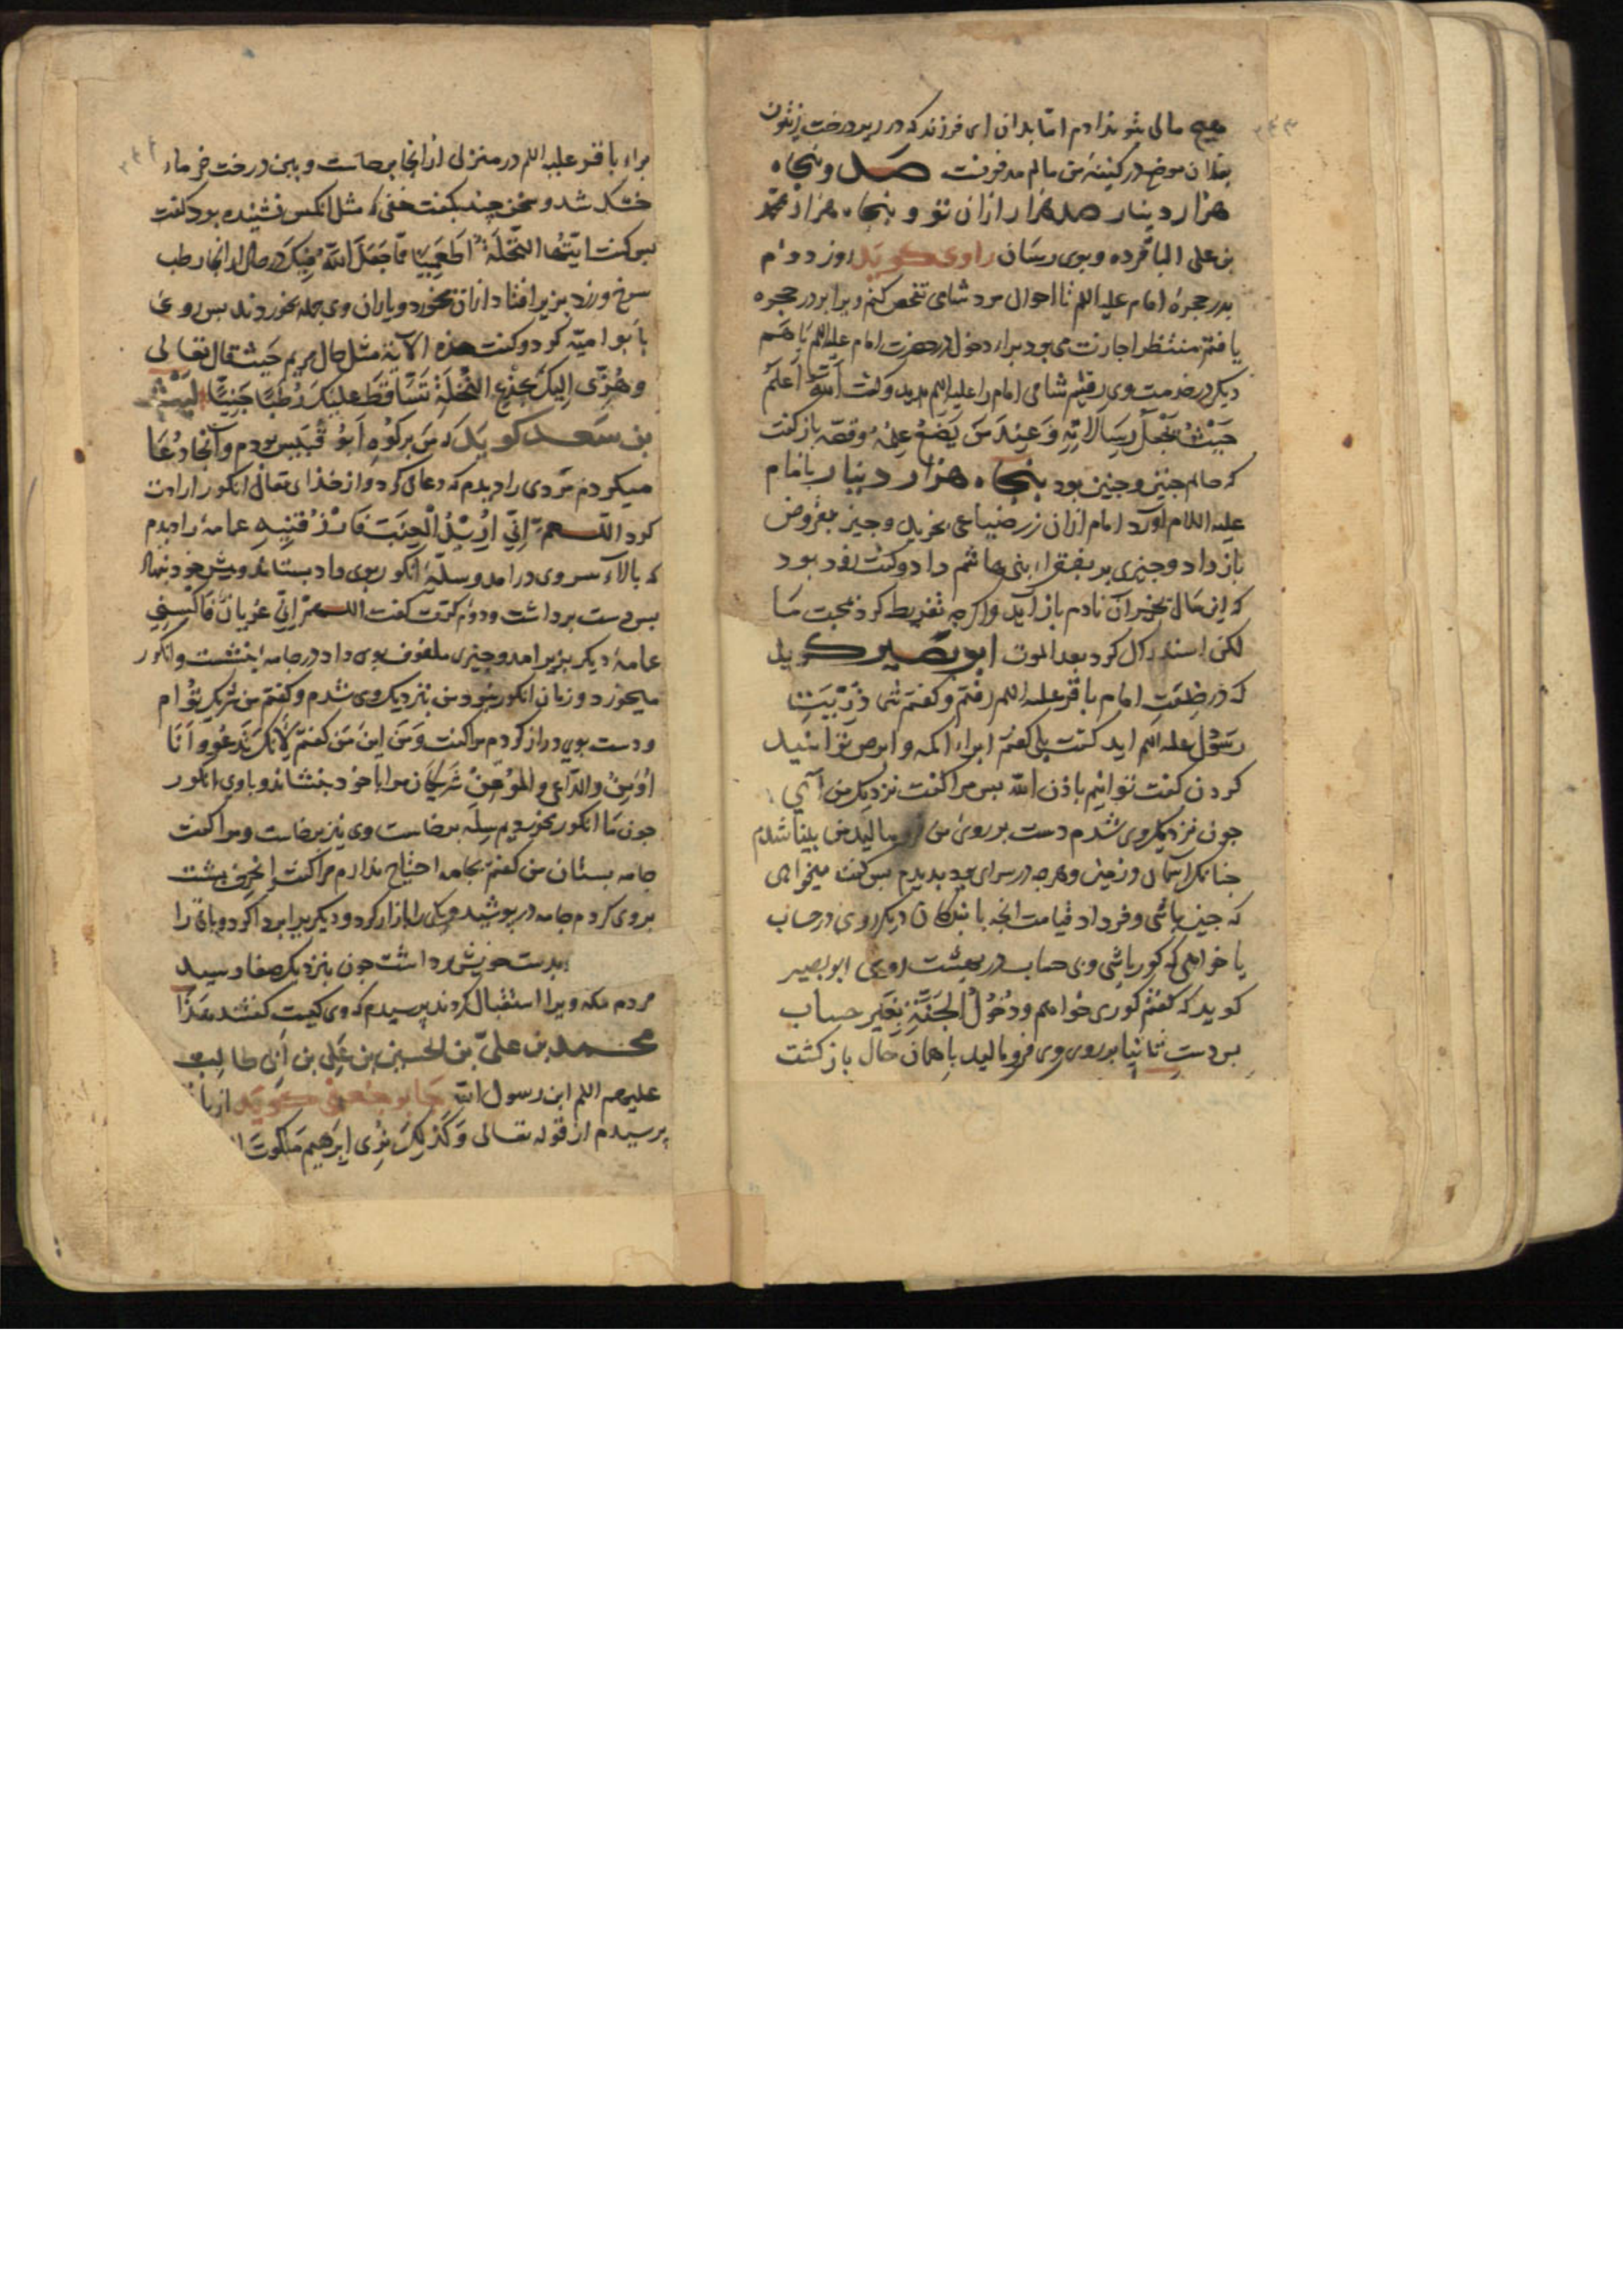 هیچ مالی بتو ندادم اما بدان ای فرزند که در زیر درخت زیتون
بفلان موضع در کنیفه من مالم مدفونست صد و پنجاه
هزار دینار صد هزار از ان تو و پنجاه هزار محمد
بن علی الباقر ده و بوی رسان راوی کوید روز دوم
بدر حجره امام علیه السلم تا احوال مرد شامی تفحص کنم ویرا بر در حجره
یافتم منتظر اجازت می بود برا دخول در حضرت امام علیه السلم با هم
دیکر در خدمت وی رفتیم شامی امام را علیه السلم بدید و کفت الله اعلم
حیث یجعل رسالاته و عند من یضع علمه و قصه باز کفت
که حالم چنین و چنین بود پنجاه هزار دینار با امام
علیه السلام آورد امام ازان زر ضیاعی بخرید و چیز بقروض
باز داد و چیزی بر بفقراء بنی هاشم داد و کفت زود بود
که این مال بخیر آن نادم باز آید و اکر چه تفریط کرد بمحبت ما
لکن استدراک کرد بعد الموت ابو بصیر کوید
که در خدمت امام باقر علیه السلم رفتم و کفتم شما ذریت
رسول علیه السلم اید کفت بلی کفتم ابراء اکمه و ابرص توانید
کردن کفت توانیم باذن الله پس مرا کفت نزدیک من آی
جون نزدیک وی شدم دست بر روی من فرو مالید من بینا شدم
جنانکه آسمان و زمین و هر جه در سرای بود بدیدم پس کفت میخواهی
که جنین باشی و فردا در قیامت انجه با بندکان دیکر روی در حساب
یا خواهی که کور باشی وبی حساب در بهشت روی ابو بصیر
کوید که کفتم کوری خواهم و دخول الجنة بغیر حساب
پس دست ثانیا بر روی وی فرو مالید با همان حال باز کشت
براء باقر علیه السلم در منزل از انجا برخاست و ببن درخت خرماء
خشک شد و سخن چند بکفت خفی که مثل انکس نشنیده بود کفت
پس کفت ایتها النخلة اطعمینا مما جعل الله فیک در حال از انجا رطب
سرخ و زرد بزیر افتاد ازان بخورد و یاران وی جمله بخوردند پس روی
با ابو امیه کرد و کفت هذه الآیة مثل حال مریم حیث قال تعالی
و هزی الیک بجذع النخلة تساقط علیک رطبا جنیا لیث
بن سعد کوید که من بر کوه ابو قبیس بودم و آنجا دعا
میکردم مردی را دیدم که دعا می کرد و از خذای تعالی انکور ارادت
کرد اللهم انی ارید العنب فارزقنیه عمامه را دیدم
که بالاء سر وی در امد و سله انکور بوی داد بستاند و پیش خود نهاد
پس دست برداشت و دوم کرت کفت اللهم انی عریان فاکسنی
عمامه دیکر بزیر امد و چیزی ملفوف بوی داد در جامه بنشست و انکور
میخورد و زمان انکور نبود من بنزدیک وی شدم و کفتم من شریک توام
و دست بوی دراز کردم مرا کفت و من این من کفتم لانک تدعو و انا
اؤمن و الداعی و المؤمن شریکان مرا با خود بنشاند و با وی انکور
جون ما انکور بخوردیم سله برخاست وی نیز برخاست و مرا کفت
جامه بستان من کفتم بجامه احتیاج ندارم مرا کفت انحرف پشت
بر وی کردم جامه در پوشید و یکی را ازار کرد و دیکر برا بردا کرد و باقی را
بدست خویش برداشت جون بنزدیک صفا رسید
مردم مکه ویرا استقبال کردند پرسیدم که وی کیست کفتند هذا
محمد بن علی بن الحسین بن علی بن ابی طالب
علیهم السلم ابن رسول الله جابر جعفی کوید از با
پرسیدم از قوله تعالی و کذلک نری ابرهیم ملکوت